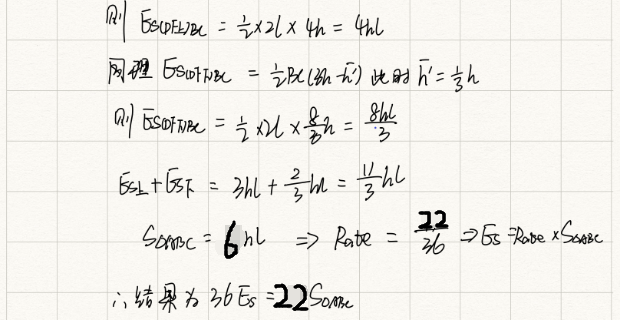 则 E_S(DF上)BC = 1/2 × 2l × 4h = 4hl
同理 E_S(DF下)BC = 1/2 BC(3h - h') 此时 h' = 1/3 h
则 E_S(DF下)BC = 1/2 × 2l × 8/3 h = 8hl/3
E_S上 + E_S下 = 3hl + 2/3 hl = 11/3 hl
S_OABC = 6hl ⇒ Rate = 22/36 ⇒ E_S = Rate × S_OABC
∴ 结果为 36 E_S = 22 S_OABC